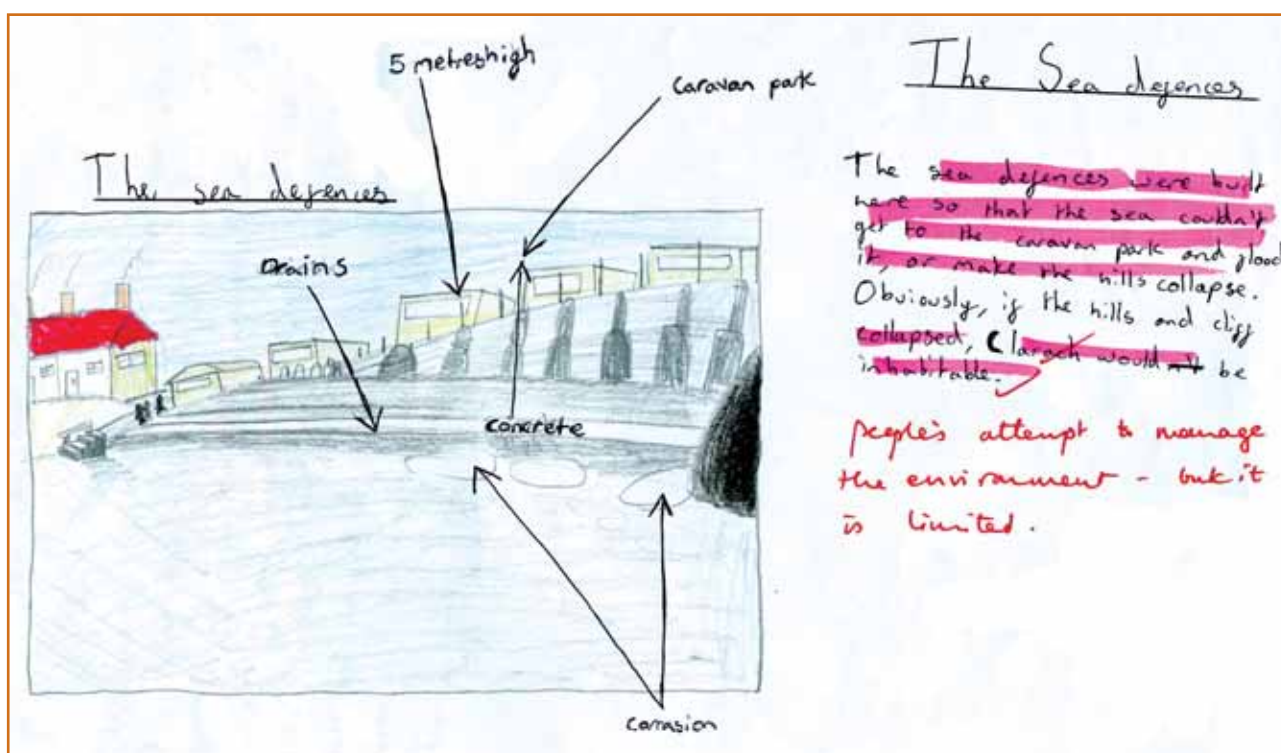 5 metres high
caravan park
The sea defences
Drains
concrete
corrasion
The Sea defences
The sea defences were built
here so that the sea couldn't
get to the caravan park and flood
it, or make the hills collapse.
Obviously, if the hills and cliff
collapsed, Clarach would n't be
inhabitable.
people's attempt to manage
the environment - but it
is limited.